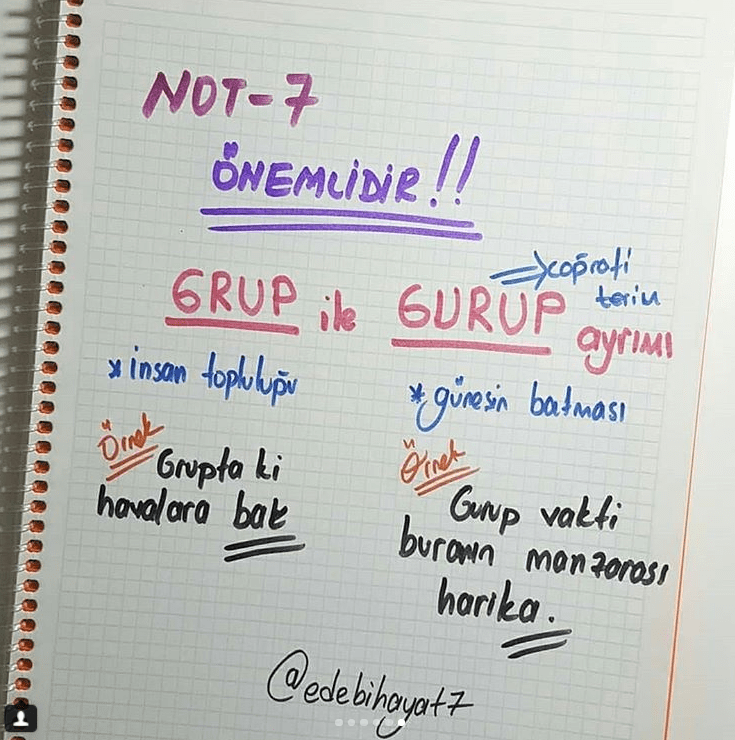 NOT-7
ÖNEMLİDİR!!
GRUP ile GURUP ayrımı
⇒ coğrafi
terim
* insan topluluğu
* güneşin batması
Örnek
Grupta ki
havalara bak
Örnek
Gurup vakti
buranın manzarası
harika.
@edebihayat7